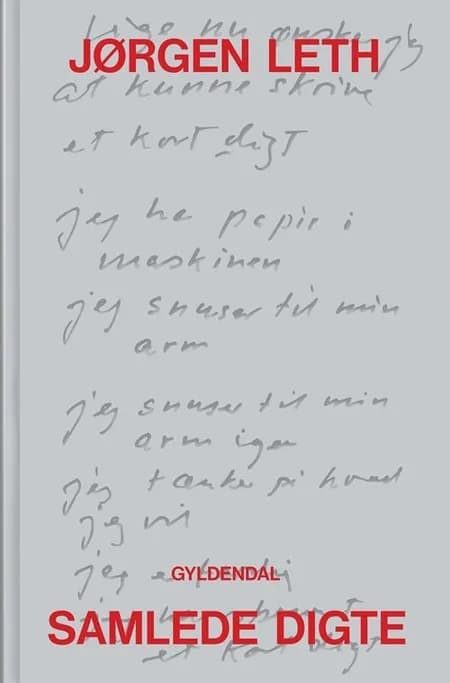 Lige nu ønsker jeg
JØRGEN LETH
at kunne skrive
et kort digt
jeg ha papir i
maskinen
jeg snuser til min
arm
jeg snuser til min
arm igen
jeg tænker på hvad
jeg vil
jeg
GYLDENDAL
SAMLEDE DIGTE
et kort digt